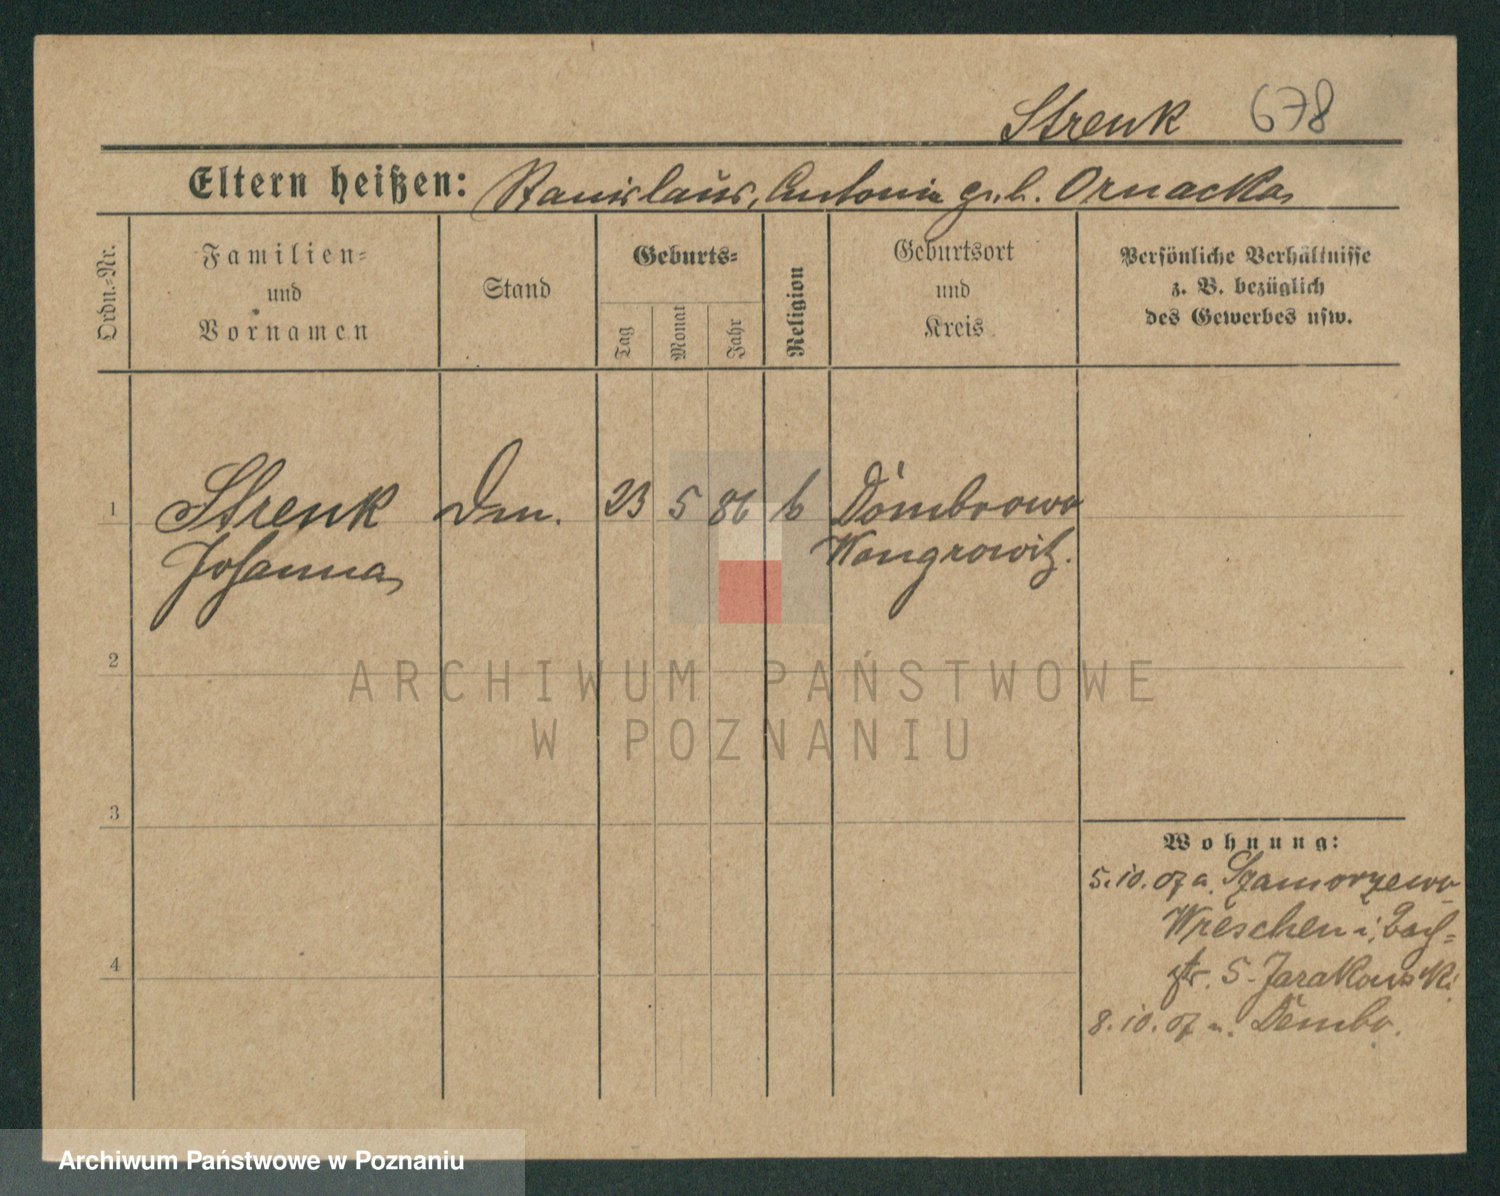 Strenk 678
Eltern heißen: Stanislaus, Antonie geb. Ornacka
Ordn.-Nr.
Familien-
und
Vornamen
Stand
Geburts-
Tag
Monat
Jahr
Religion
Geburtsort
und
Kreis
Persönliche Verhältnisse
z. B. bezüglich
des Gewerbes usw.
1 Strenk 23 5 86 k Dombrowo
Johanna Wongrowitz.
2
ARCHIWUM PAŃSTWOWE
W POZNANIU
3
Wohnung:
5.10.07 a. Szamorzewo
Wreschen i, Bach=
4
str. 5 - Jarakowski
8.10.07 n. Dembo.
Archiwum Państwowe w Poznaniu